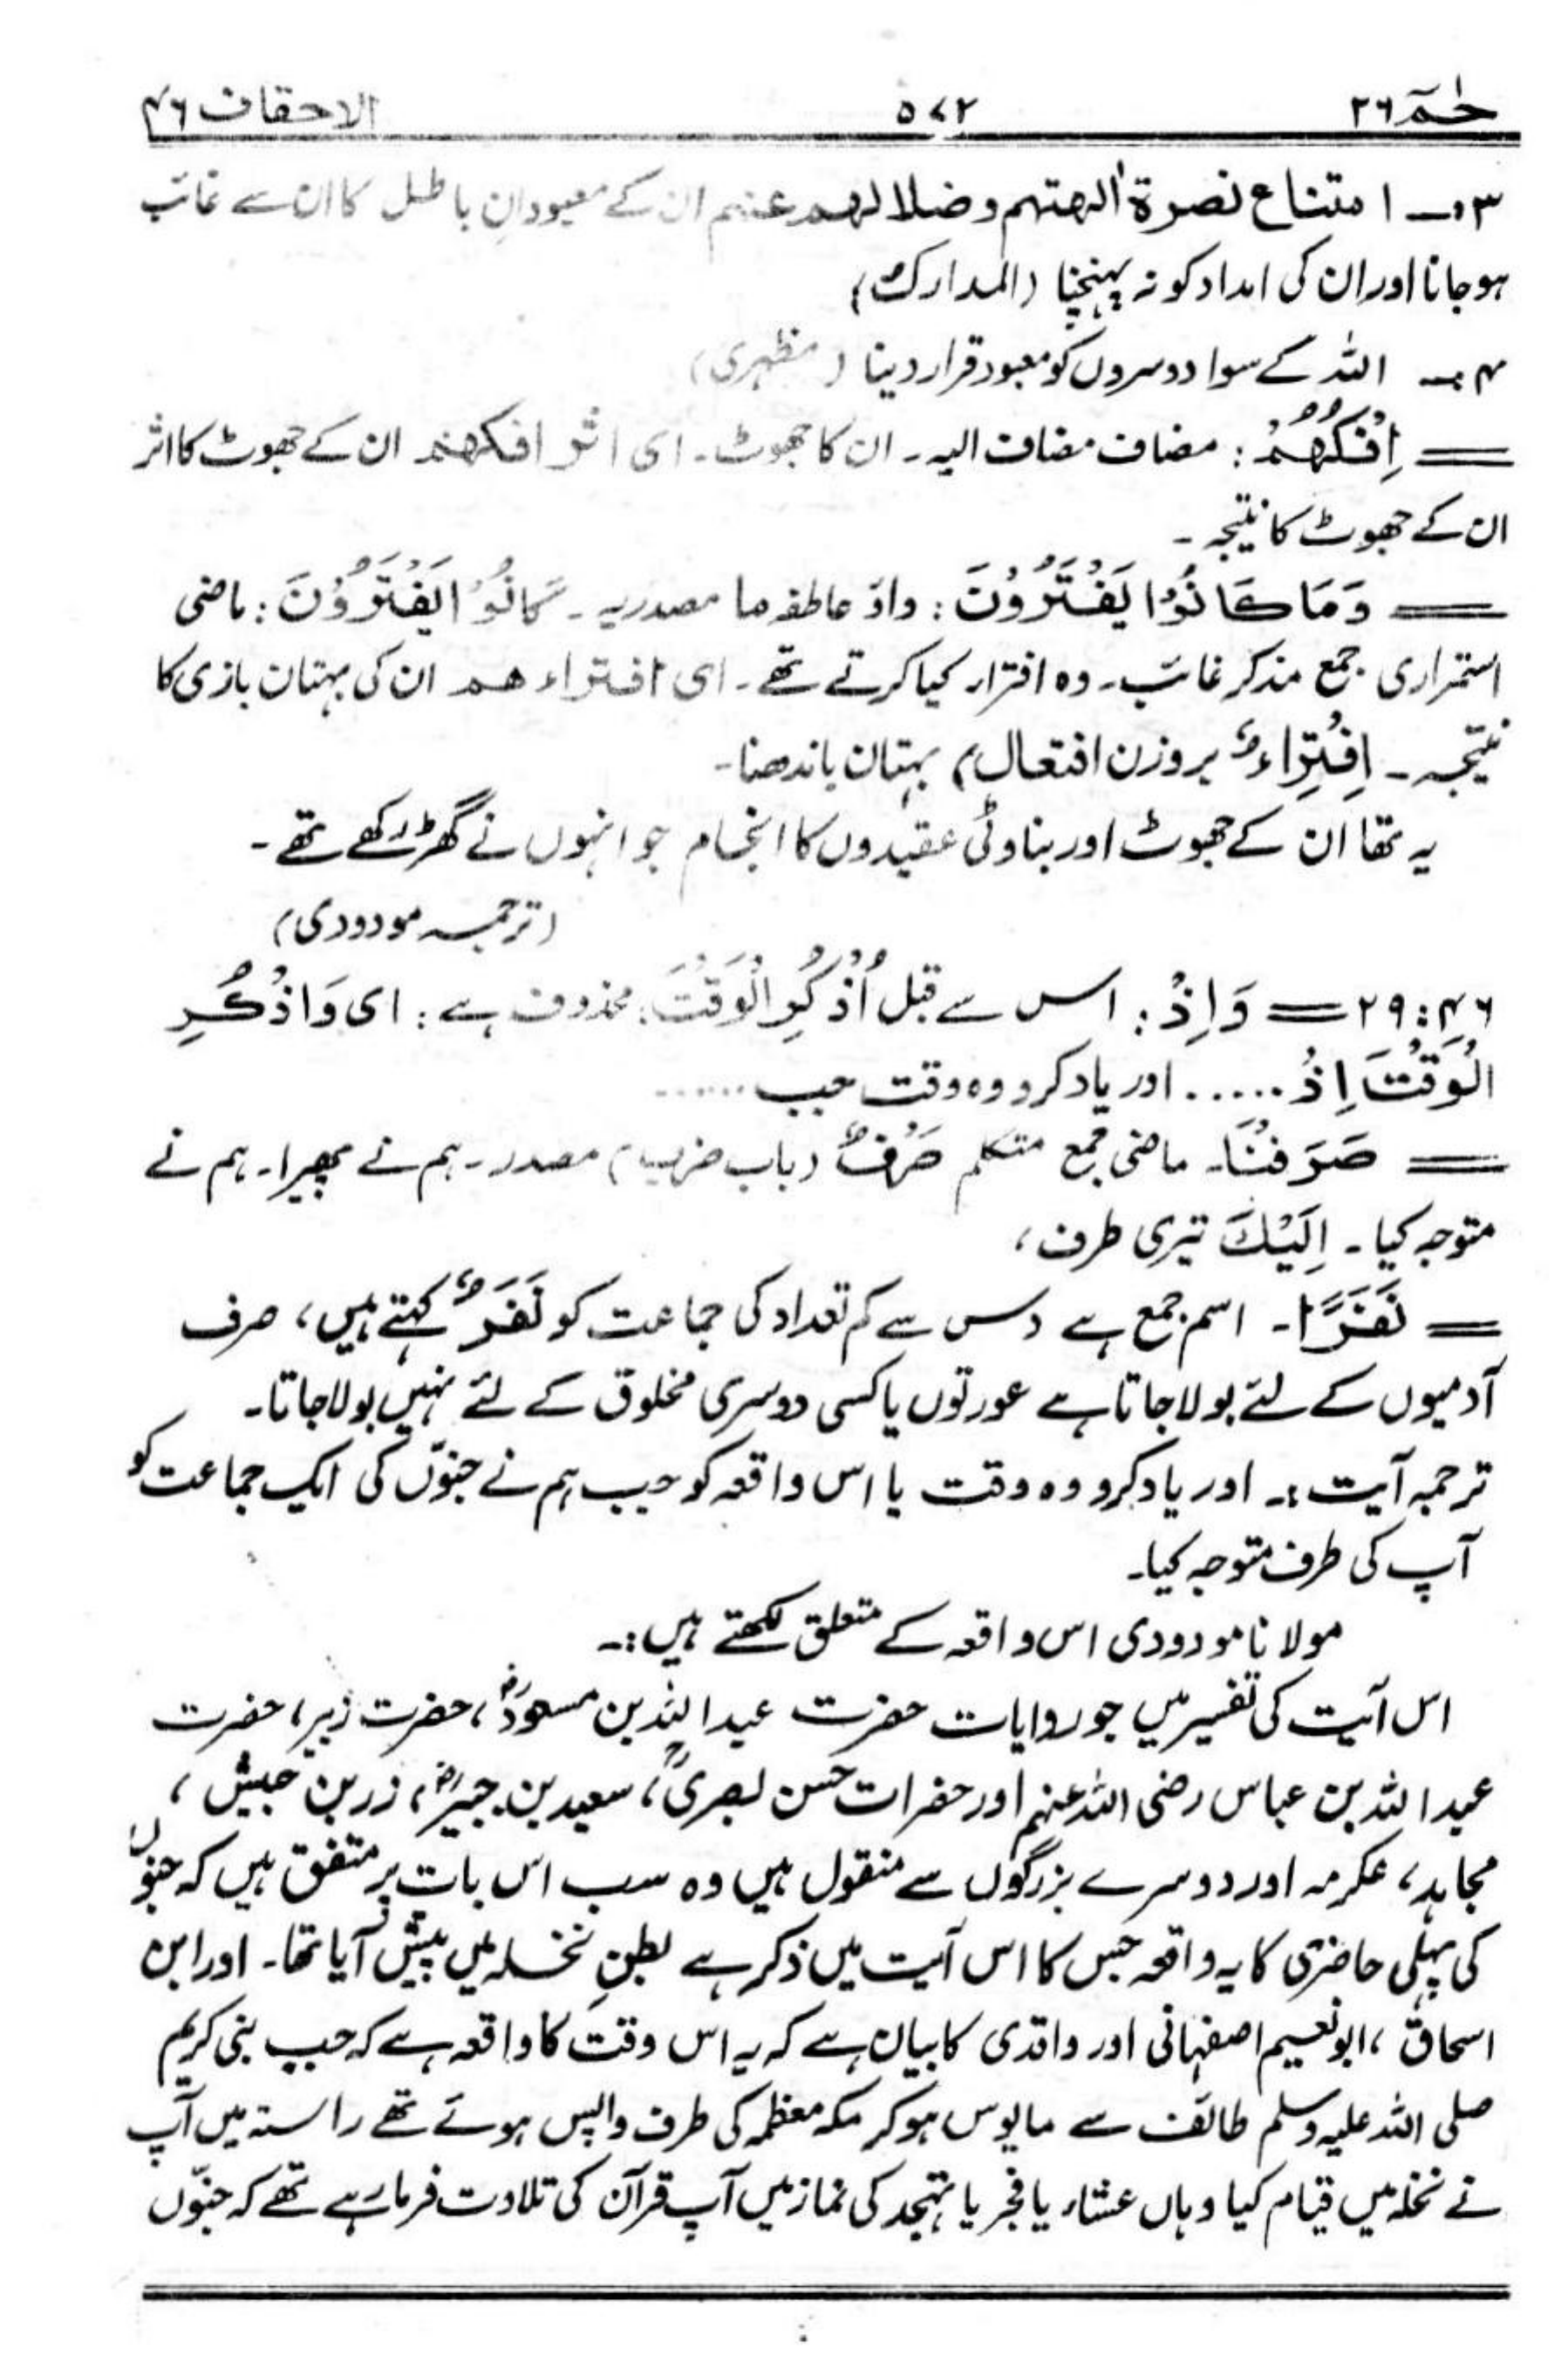 حٰمٓ ٢٦ ٥٧٢ الاحقاف ٤٦
٣:۔ امتناع نصرۃ اٰلهتهم وضلالهم عنهم ان کے معبودانِ باطل کا ان سے غائب
ہو جانا اور ان کی امداد کو نہ پہنچنا (المدارک)
٤:۔ اللہ کے سوا دوسروں کو معبود قرار دینا (مظہری)
== اِفْكُهُمْ: مضاف مضاف الیہ۔ ان کا جھوٹ۔ ای اثر افکهم ان کے جھوٹ کا اثر
ان کے جھوٹ کا نتیجہ۔
== وَمَا كَانُوْا يَفْتَرُوْنَ: واؤ عاطفہ ما مصدریہ۔ كَانُوْا يَفْتَرُوْنَ: ماضی
استمراری جمع مذکر غائب۔ وہ افترار کیا کرتے تھے۔ ای افتراء هم ان کی بہتان بازی کا
نتیجہ۔ اِفْتِرَاءٌ بروزن افتعال) بہتان باندھنا۔
یہ تھا ان کے جھوٹ اور بناوٹی عقیدوں کا انجام جو انہوں نے گھڑ رکھے تھے۔
(ترجمہ مودودی)
٤٦:٢٩ == وَاِذْ: اس سے قبل اُذْكُرِ الْوَقْتَ: محذوف ہے: ای وَاذْكُرِ
الْوَقْتَ اِذْ ...... اور یاد کرو وہ وقت جب ......
== صَرَفْنَا۔ ماضی جمع متکلم صَرْفٌ (باب ضرب) مصدر۔ ہم نے پھیرا۔ ہم نے
متوجہ کیا۔ اِلَيْكَ تیری طرف،
== نَفَرًا۔ اسم جمع ہے دس سے کم تعداد کی جماعت کو نَفَرٌ کہتے ہیں، صرف
آدمیوں کے لئے بولا جاتا ہے عورتوں یا کسی دوسری مخلوق کے لئے نہیں بولا جاتا۔
ترجمہ آیت:۔ اور یاد کرو وہ وقت یا اس واقعہ کو جب ہم نے جنّوں کی ایک جماعت کو
آپ کی طرف متوجہ کیا۔
مولانا مودودی اس واقعہ کے متعلق لکھتے ہیں:۔
اس آیت کی تفسیر میں جو روایات حضرت عبد اللہ بن مسعودؓ، حضرت زبیر، حضرت
عبد اللہ بن عباس رضی اللہ عنہم اور حضرات حسن بصریؒ، سعید بن جبیرؓ، زر بن حبیش،
مجاہد، عکرمہ اور دوسرے بزرگوں سے منقول ہیں وہ سب اس بات پر متفق ہیں کہ جنوں
کی پہلی حاضری کا یہ واقعہ جس کا اس آیت میں ذکر ہے بطنِ نخلہ میں پیش آیا تھا۔ اور ابن
اسحاق، ابو نعیم اصفہانی اور واقدی کا بیان ہے کہ یہ اس وقت کا واقعہ ہے کہ جب نبی کریم
صلی اللہ علیہ وسلم طائف سے مایوس ہو کر مکہ معظمہ کی طرف واپس ہوئے تھے راستہ میں آپ
نے نخلہ میں قیام کیا وہاں عشاء یا فجر یا تہجد کی نماز میں آپ قرآن کی تلاوت فرما رہے تھے کہ جنّوں